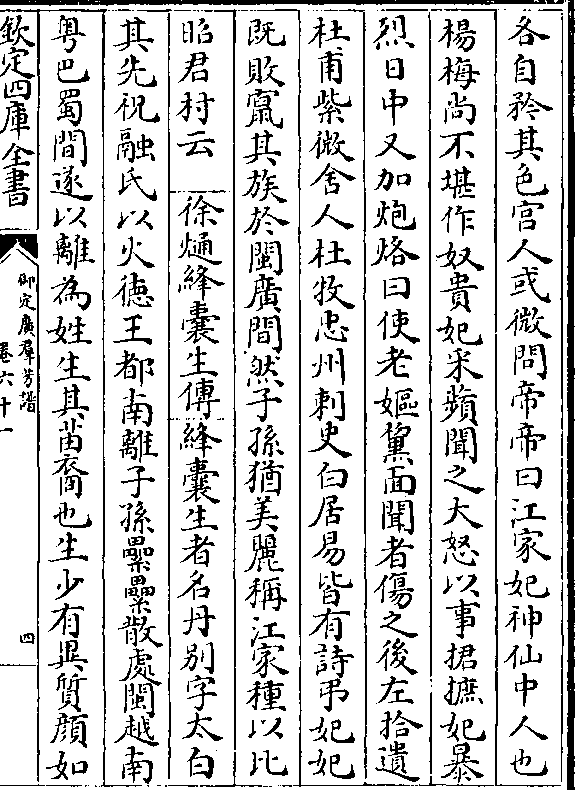 各自矜其色宫人或微問帝帝曰江家妃神仙中人也
楊梅尚不堪作奴貴妃采蘋聞之大怒以事捃摭妃暴
烈日中又加炮烙曰使老嫗黧面聞者傷之後左拾遺
杜甫紫微舍人杜牧忠州刺史白居易皆有詩弔妃妃
既敗竄其族於閩廣間然子孫猶美麗稱江家種以比
昭君村云 徐𤊹絳囊生傳絳囊生者名丹别字太白
其先祝融氏以火徳王都南離子孫纍纍散處閩越南
粤巴蜀間遂以離為姓生其苗裔也生少有異質顔如
欽定四庫全書
御定廣羣芳譜
卷六十一
四